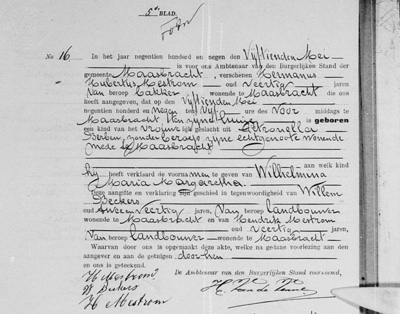 5de BLAD.
No 16
In het jaar negentien honderd en negen den Vijftienden Mei
is voor ons Ambtenaar van den Burgerlijken Stand der
gemeente Maasbracht, verschenen Hermanus
Hubertus Mestrom oud Veertig jaren,
van beroep bakker wonende te Maasbracht die ons
heeft aangegeven, dat op den Vijftienden Mei
negentien honderd en negen ten Vijf ure des Voor middags te
Maasbracht ten zijne huize is geboren
een kind van het Vrouwelijk geslacht uit Petronella
Berben, zonder beroep zijne echtgenoote wonende
mede te Maasbracht
aan welk kind
hij heeft verklaard de voornamen te geven van Wilhelmina
Maria Margaretha.
Deze aangifte en verklaring zijn geschied in tegenwoordigheid van Willem
Beckers
oud tweeenveertig jaren, van beroep landbouwer
wonende te Maasbracht en van Hendrik Mestrom
oud veertig jaren,
van beroep landbouwer wonende te Maasbracht
Waarvan door ons is opgemaakt deze akte, welke na gedane voorlezing aan den
aangever en aan de getuigen door hen
en ons is geteekend.
De Ambtenaar van den Burgerlijken Stand voornoemd,
H Mestrom
W Beckers
H Mestrom